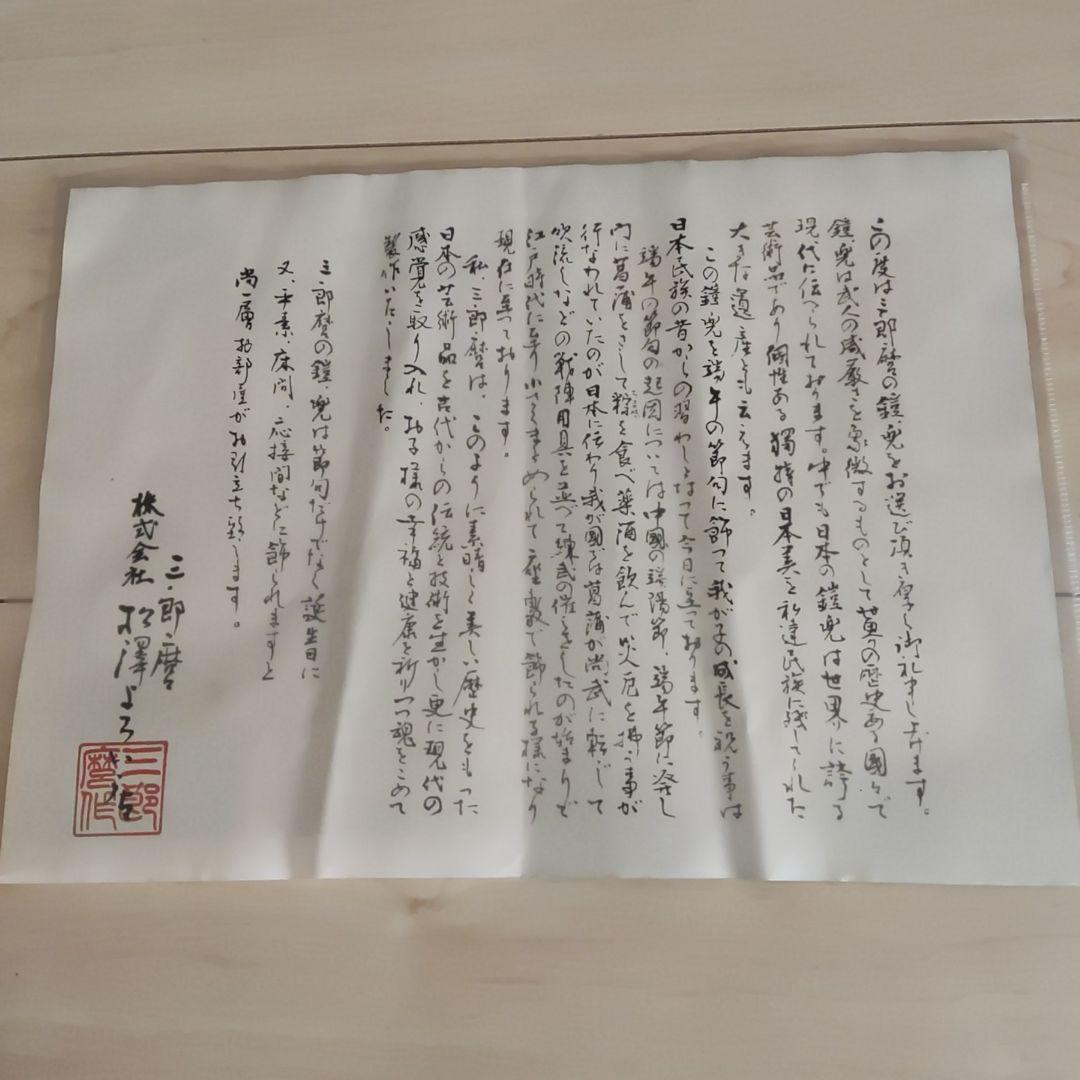 この度は三郎麿の鎧、兜をお選び頂き厚く御礼申し上げます。
鎧、兜は武人の威厳さを象徴するものとして世界の歴史ある国々で
現代に伝へられております。中でも日本の鎧兜は世界に誇る
芸術品であり個性ある獨特の日本美を私達民族に残してくれた
大きな遺産とも云えます。
この鎧兜を端午の節句に飾って我が子の成長を祝う事は
日本民族の昔からの習わしとなって今日に至っております。
端午の節句の起因については中國の端陽節、端午節に発し
門に菖蒲をさして粽を食べ薬酒を飲んで災厄を拂う事が
ちまき
行なわれていたのが日本に伝わり我が國では菖蒲が尚武に転じて
吹流しなどの戦陣用具を並べて練武の催をしたのが始まりで
江戸時代に至り小さくまとめられて座敷で飾られる様になり
現在に至っております。
私、三郎麿は、このように素晴しく美しい歴史をもった
日本の芸術品を古代からの伝統と技術を生かし更に現代の
感覚を取り入れ、お子様の幸福と健康を祈りつつ魂をこめて
製作いたしました。
三郎麿の鎧、兜は節句だけでなく誕生日に
又、平素、床間、応接間などに飾られますと
尚一層お部屋がお引立ち致します。
三郎麿
株式会社 松澤よろい
三郎
麿作